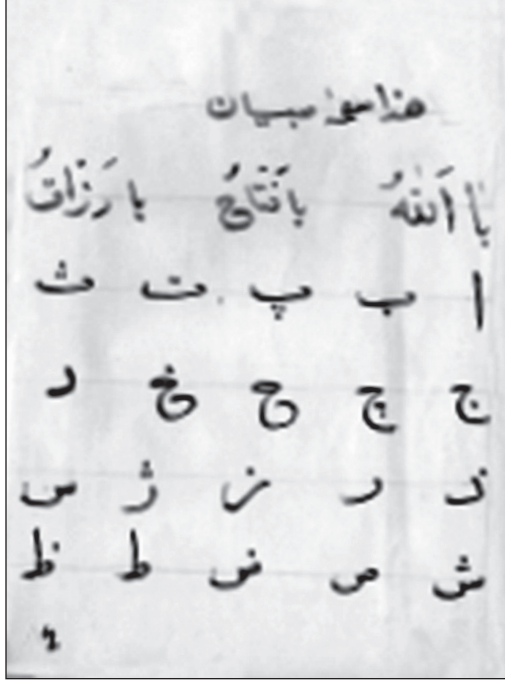 هذا صبيان
يا اَللهُ يا فَتَّاحُ يا رَزَّاقُ
ا ب پ ت ث
ج چ ح خ د
ذ ر ز ژ س
ش ص ض ط ظ